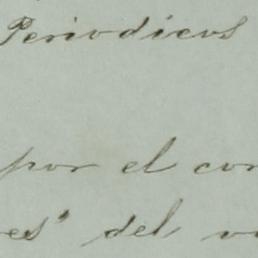 Periodicos
por el con
res" del